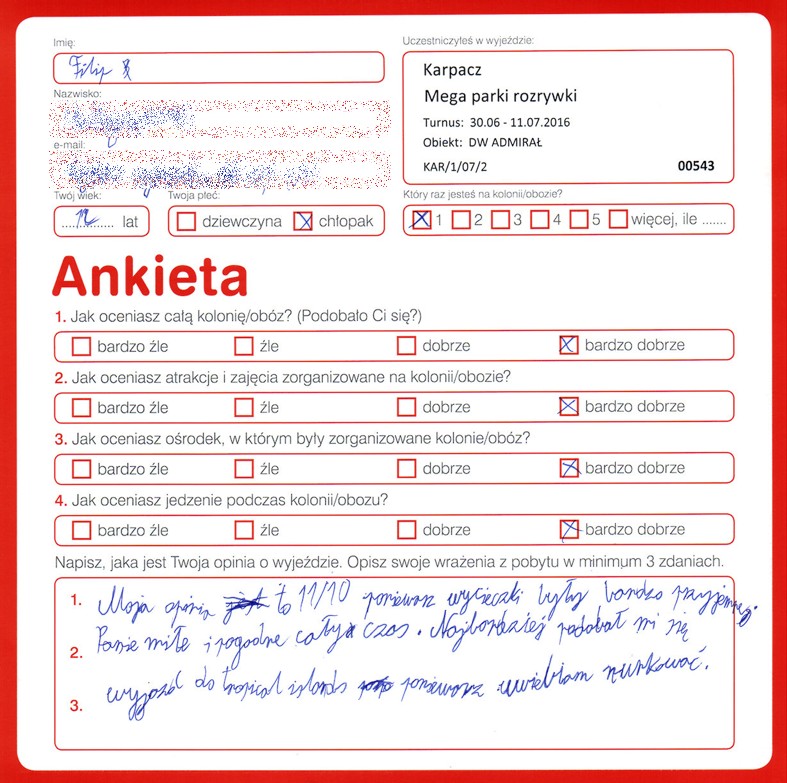 Imię:
Filip
Uczestniczyłeś w wyjeździe:
Karpacz
Mega parki rozrywki
Turnus: 30.06 - 11.07.2016
Obiekt: DW ADMIRAŁ
KAR/1/07/2 00543
Nazwisko:
e-mail:
Twój wiek:
12 lat
Twoja płeć:
dziewczyna chłopak
Który raz jesteś na kolonii/obozie?
1 2 3 4 5 więcej, ile .......
Ankieta
1. Jak oceniasz całą kolonię/obóz? (Podobało Ci się?)
bardzo źle źle dobrze bardzo dobrze
2. Jak oceniasz atrakcje i zajęcia zorganizowane na kolonii/obozie?
bardzo źle źle dobrze bardzo dobrze
3. Jak oceniasz ośrodek, w którym były zorganizowane kolonie/obóz?
bardzo źle źle dobrze bardzo dobrze
4. Jak oceniasz jedzenie podczas kolonii/obozu?
bardzo źle źle dobrze bardzo dobrze
Napisz, jaka jest Twoja opinia o wyjeździe. Opisz swoje wrażenia z pobytu w minimum 3 zdaniach.
1. Moja opinia to 11/10 poniewarz wycieczki były bardzo przyjemne.
2. Panie miłe i pogodne cały czas. Najbardziej podobał mi się
3. wyjazd do tropical islands poniewarz uwielbiam nurkować.